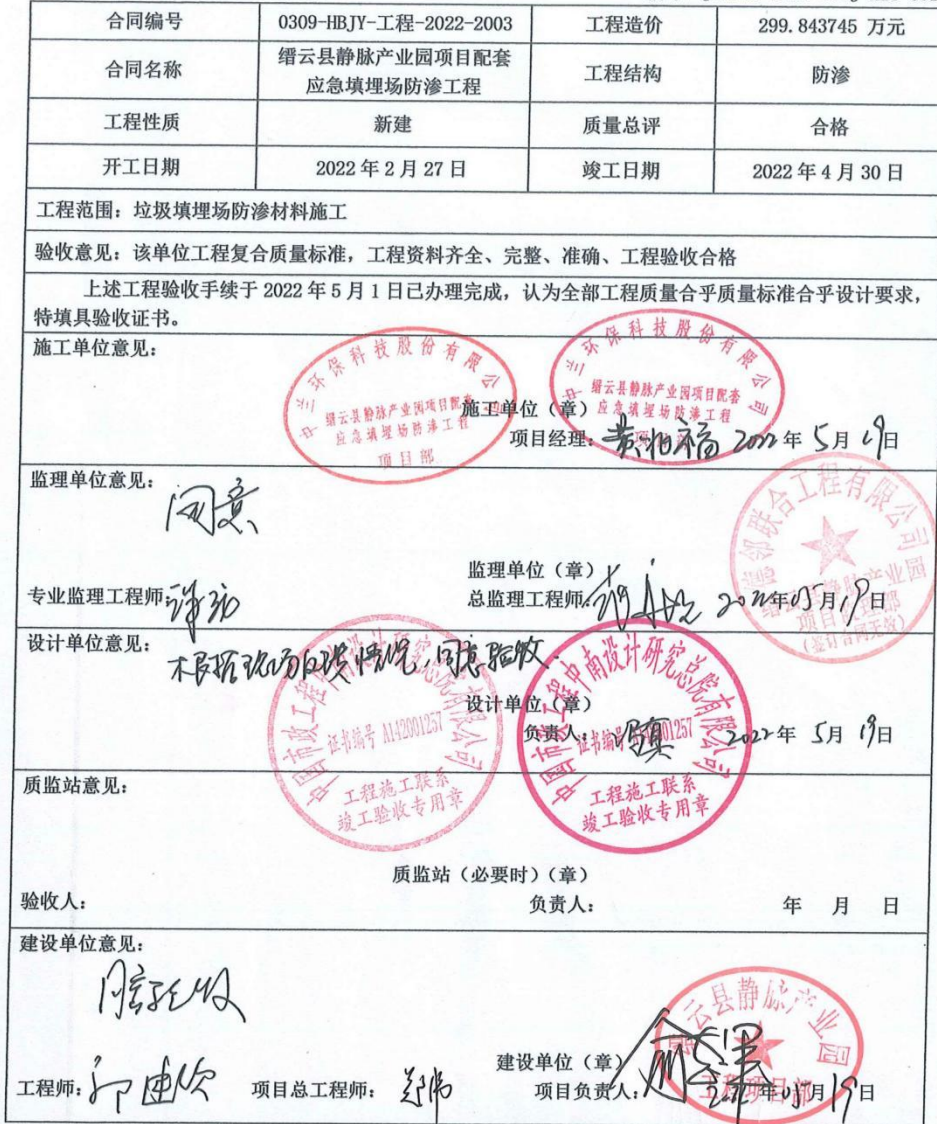 合同编号 0309-HBJY-工程-2022-2003 工程造价 299.843745 万元
合同名称 缙云县静脉产业园项目配套应急填埋场防渗工程 工程结构 防渗
工程性质 新建 质量总评 合格
开工日期 2022年2月27日 竣工日期 2022年4月30日
工程范围：垃圾填埋场防渗材料施工
验收意见：该单位工程复合质量标准，工程资料齐全、完整、准确、工程验收合格
上述工程验收手续于 2022 年 5 月 1 日已办理完成，认为全部工程质量合乎质量标准合乎设计要求，
特填具验收证书。
施工单位意见：
中兰环保科技股份有限公司
缙云县静脉产业园项目配套
应急填埋场防渗工程
项目部
中兰环保科技股份有限公司
缙云县静脉产业园项目配套
应急填埋场防渗工程
施工单位（章）
项目经理： 2022年 5月 19日
监理单位意见：
同意
监理单位（章）
专业监理工程师： 总监理工程师： 2022年05月19日
联合工程有限公司
(签订合同无效)
设计单位意见：
根据现场反馈情况，同意验收.
设计单位（章）
负责人： 2022年 5月 19日
中国市政工程中南设计研究总院有限公司
证书编号 A142001257
工程施工联系
竣工验收专用章
中国市政工程中南设计研究总院有限公司
证书编号 A142001257
工程施工联系
竣工验收专用章
质监站意见：
质监站（必要时）（章）
验收人： 负责人： 年 月 日
建设单位意见：
同意验收
建设单位（章）
工程师： 项目总工程师： 郑伟 项目负责人： 年05月19日
缙云县静脉产业园
工程项目部